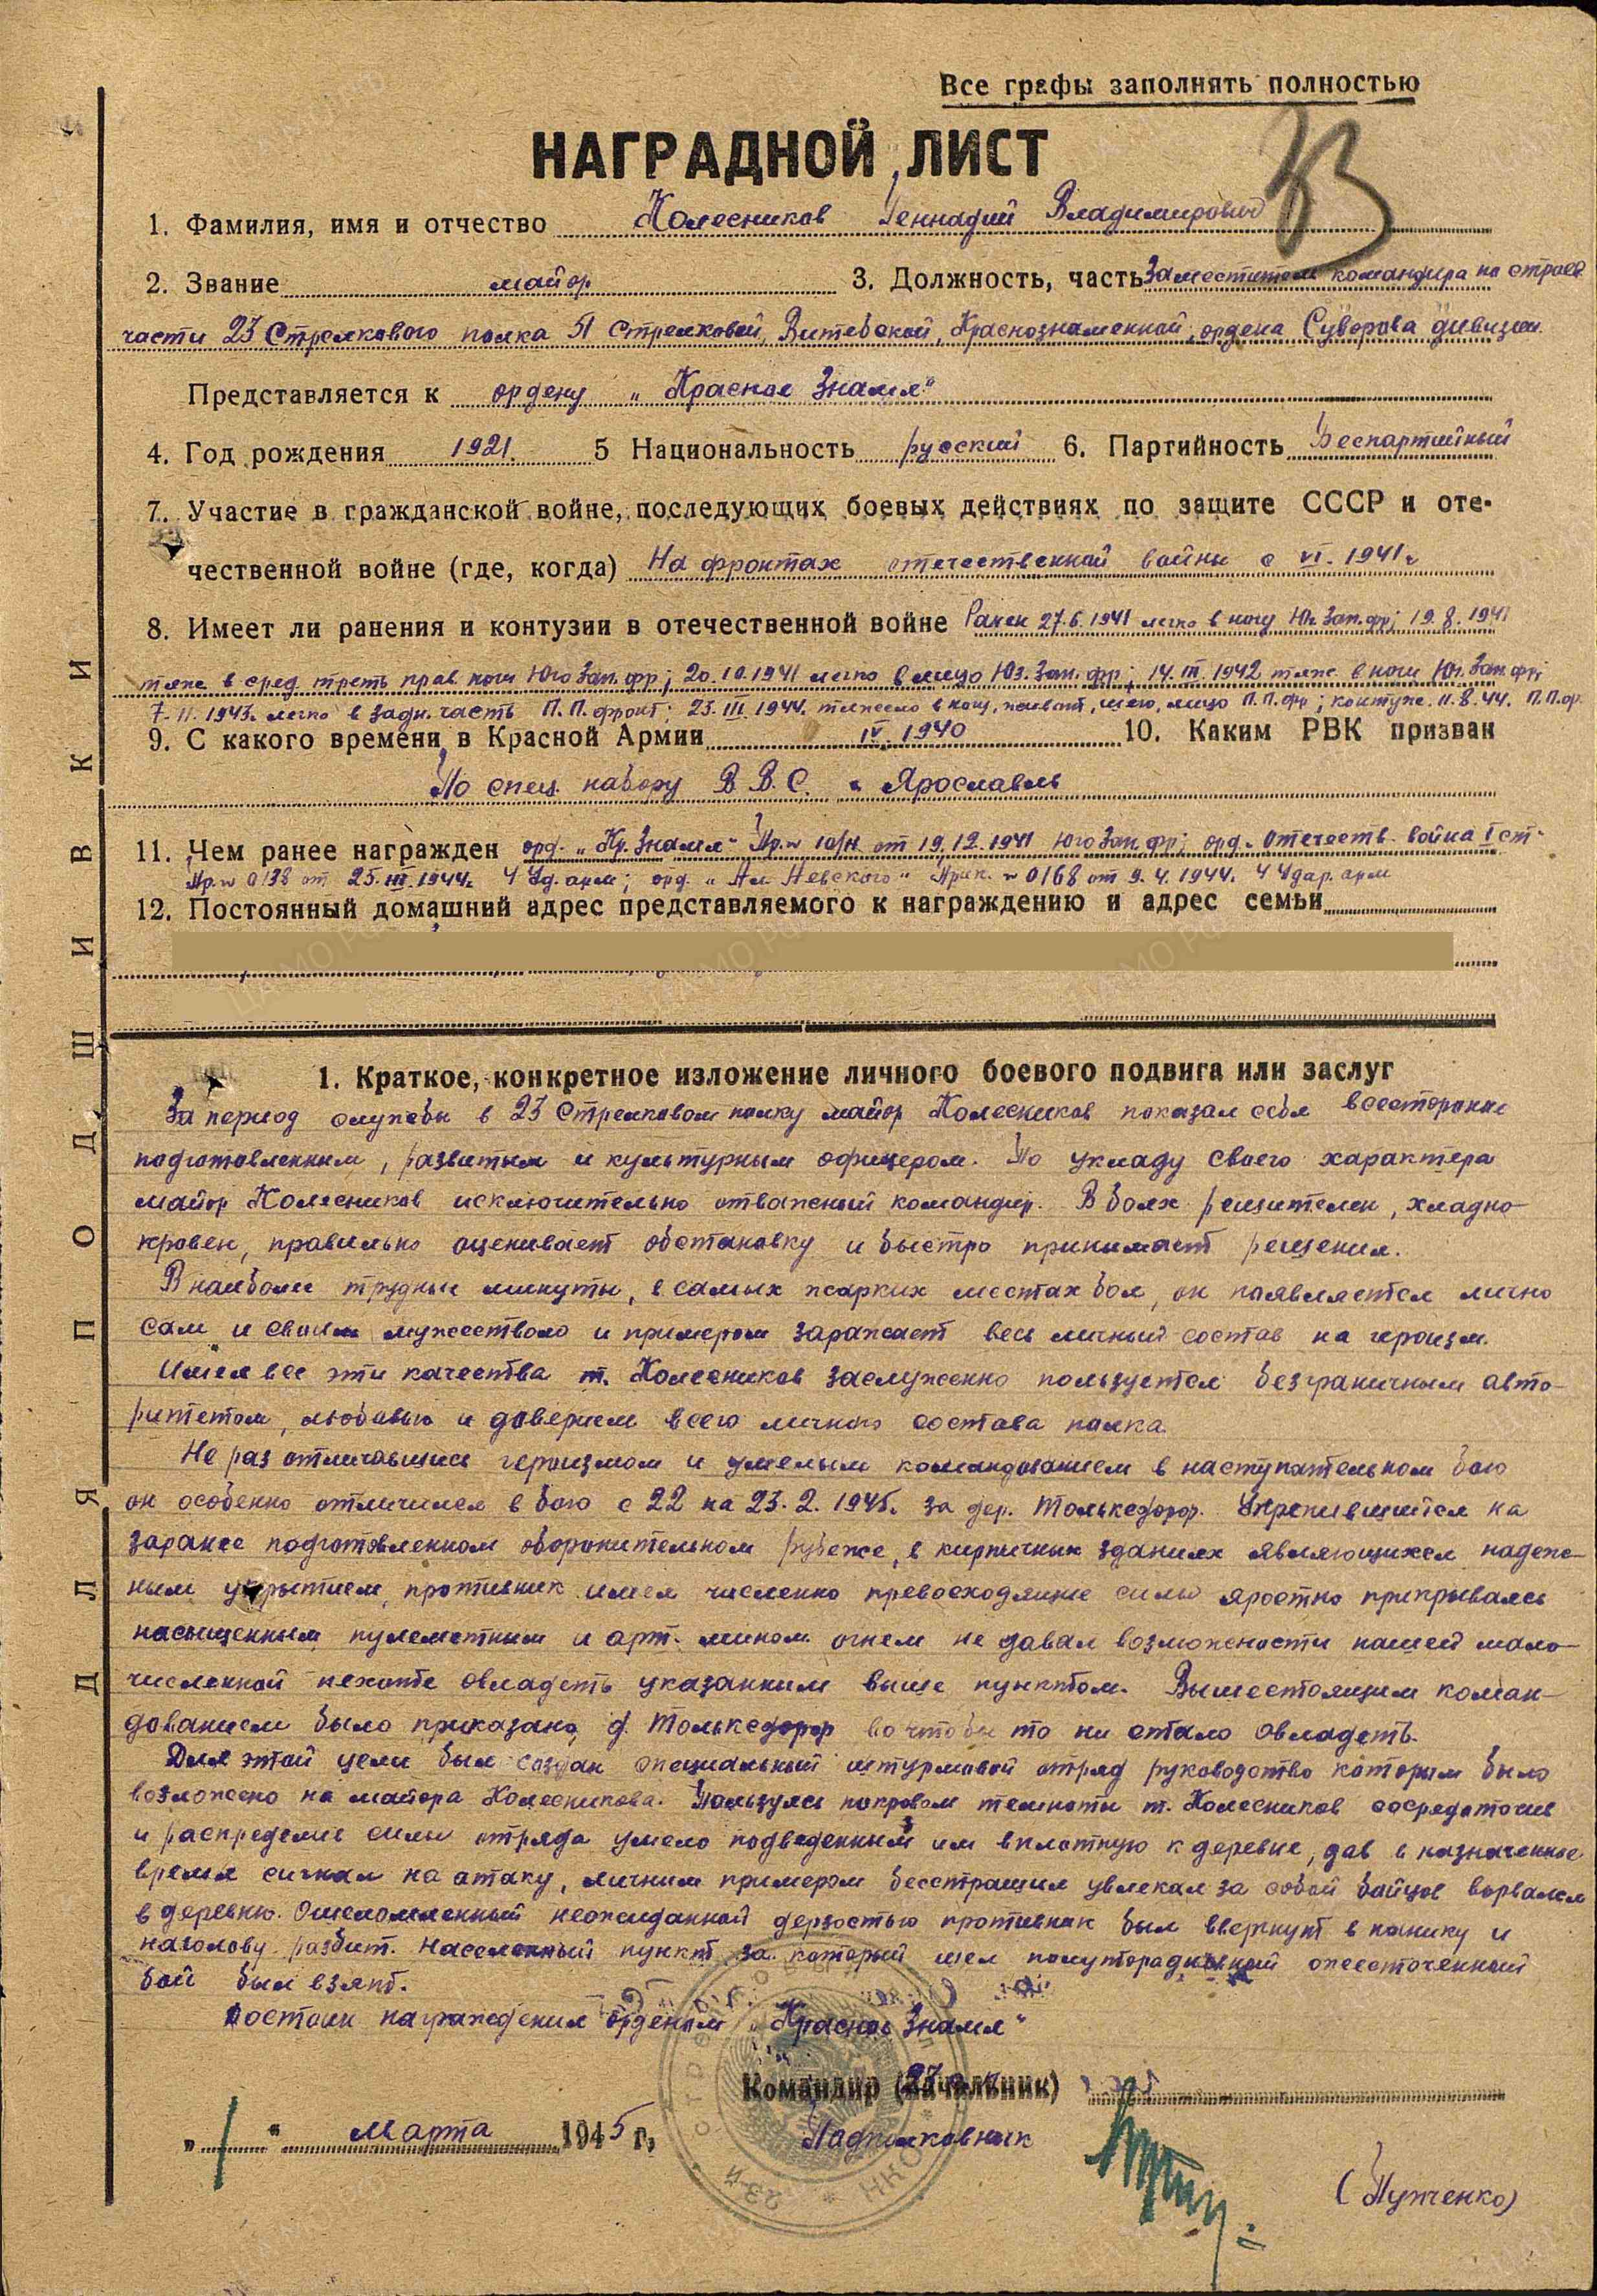 Все графы заполнять полностью
НАГРАДНОЙ ЛИСТ
33
1. Фамилия, имя и отчество Колесников Геннадий Владимирович
2. Звание майор 3. Должность, часть Заместитель командира по строев.
части 23 Стрелкового полка 51 Стрелковой, Витебской, Краснознаменной, ордена Суворова дивизии.
Представляется к ордену „Красное Знамя“
4. Год рождения 1921. 5 Национальность русский 6. Партийность Беспартийный
7. Участие в гражданской войне, последующих боевых действиях по защите СССР и оте-
чественной войне (где, когда) На фронтах отечественной войны с VI. 1941г
8. Имеет ли ранения и контузии в отечественной войне Ранен 27.6.1941 легко в ногу Юг. Зап. фр; 19.8.1941
тяж. в сред. треть прав. ноги Юго Зап. фр; 20.10.1941 легко в лицо Юз. Зап. фр; 14.III.1942 тяж. в ноги Юг. Зап. фр;
7.11.1943. легко в задн. часть П.П. фронт; 23.III.1944. тяжело в ногу, живот, шею, лицо П.П. фр; контуж. 11.8.44. П.П. фр.
9. С какого времени в Красной Армии IV. 1940 10. Каким РВК призван
По спец. набору В.В.С. г. Ярославль
11. Чем ранее награжден орд. „Кр. Знамя“ Пр.№ 10/н от 19.12.1941 Юго Зап. фр; орд. Отечеств. война I ст-
Пр.№ 0138 от 25.III.1944г. 4 Уд. арм; орд. „Ал. Невского“ Прик. № 0168 от 9.4.1944г. 4 Удар. арм
12. Постоянный домашний адрес представляемого к награждению и адрес семьи
1. Краткое, конкретное изложение личного боевого подвига или заслуг
За период службы в 23 Стрелковом полку майор Колесников показал себя всесторонне
подготовленным, развитым и культурным офицером. По укладу своего характера
майор Колесников исключительно отважный командир. В боях решителен, хладно-
кровен, правильно оценивает обстановку и быстро принимает решения.
В наиболее трудные минуты, в самых жарких местах боя, он появляется лично
сам и своим мужеством и примером заражает весь личный состав на героизм.
Имея все эти качества т. Колесников заслуженно пользуется безграничным авто-
ритетом, любовью и доверием всего личного состава полка.
Не раз отличавшись героизмом и умелым командованием в наступательном бою
он особенно отличился в бою с 22 на 23.2.1945г. за дер. Тольксдорф. Укрепившийся на
заранее подготовленном оборонительном рубеже, в кирпичных зданиях являющихся надеж-
ным укрытием, противник имея численно превосходящие силы яростно прикрываясь
насыщенным пулеметным и арт. мином. огнем не давал возможности нашей мало-
численной пехоте овладеть указанным выше пунктом. Вышестоящим коман-
дованием было приказано, д. Тольксдорф во чтобы то ни стало овладеть.
Для этой цели был создан специальный штурмовой отряд руководство которым было
возложено на майора Колесникова. Пользуясь покровом темноты т. Колесников сосредоточив
и распределив силы отряда умело подведенный им вплотную к деревне, дав в назначенное
время сигнал на атаку, личным примером бесстрашия увлекая за собой бойцов ворвался
в деревню. Ошеломленный неожиданной дерзостью противник был ввергнут в панику и
наголову разбит. Населенный пункт за который шел полуторадневный ожесточенный
бой был взят.
Достоин награждения орденом „Красное Знамя“
Командир (начальник)
„1“ марта 1945 г.
Подполковник
(Пузченко)
23-й
НКО
ДЛЯ ПОДШИВКИ